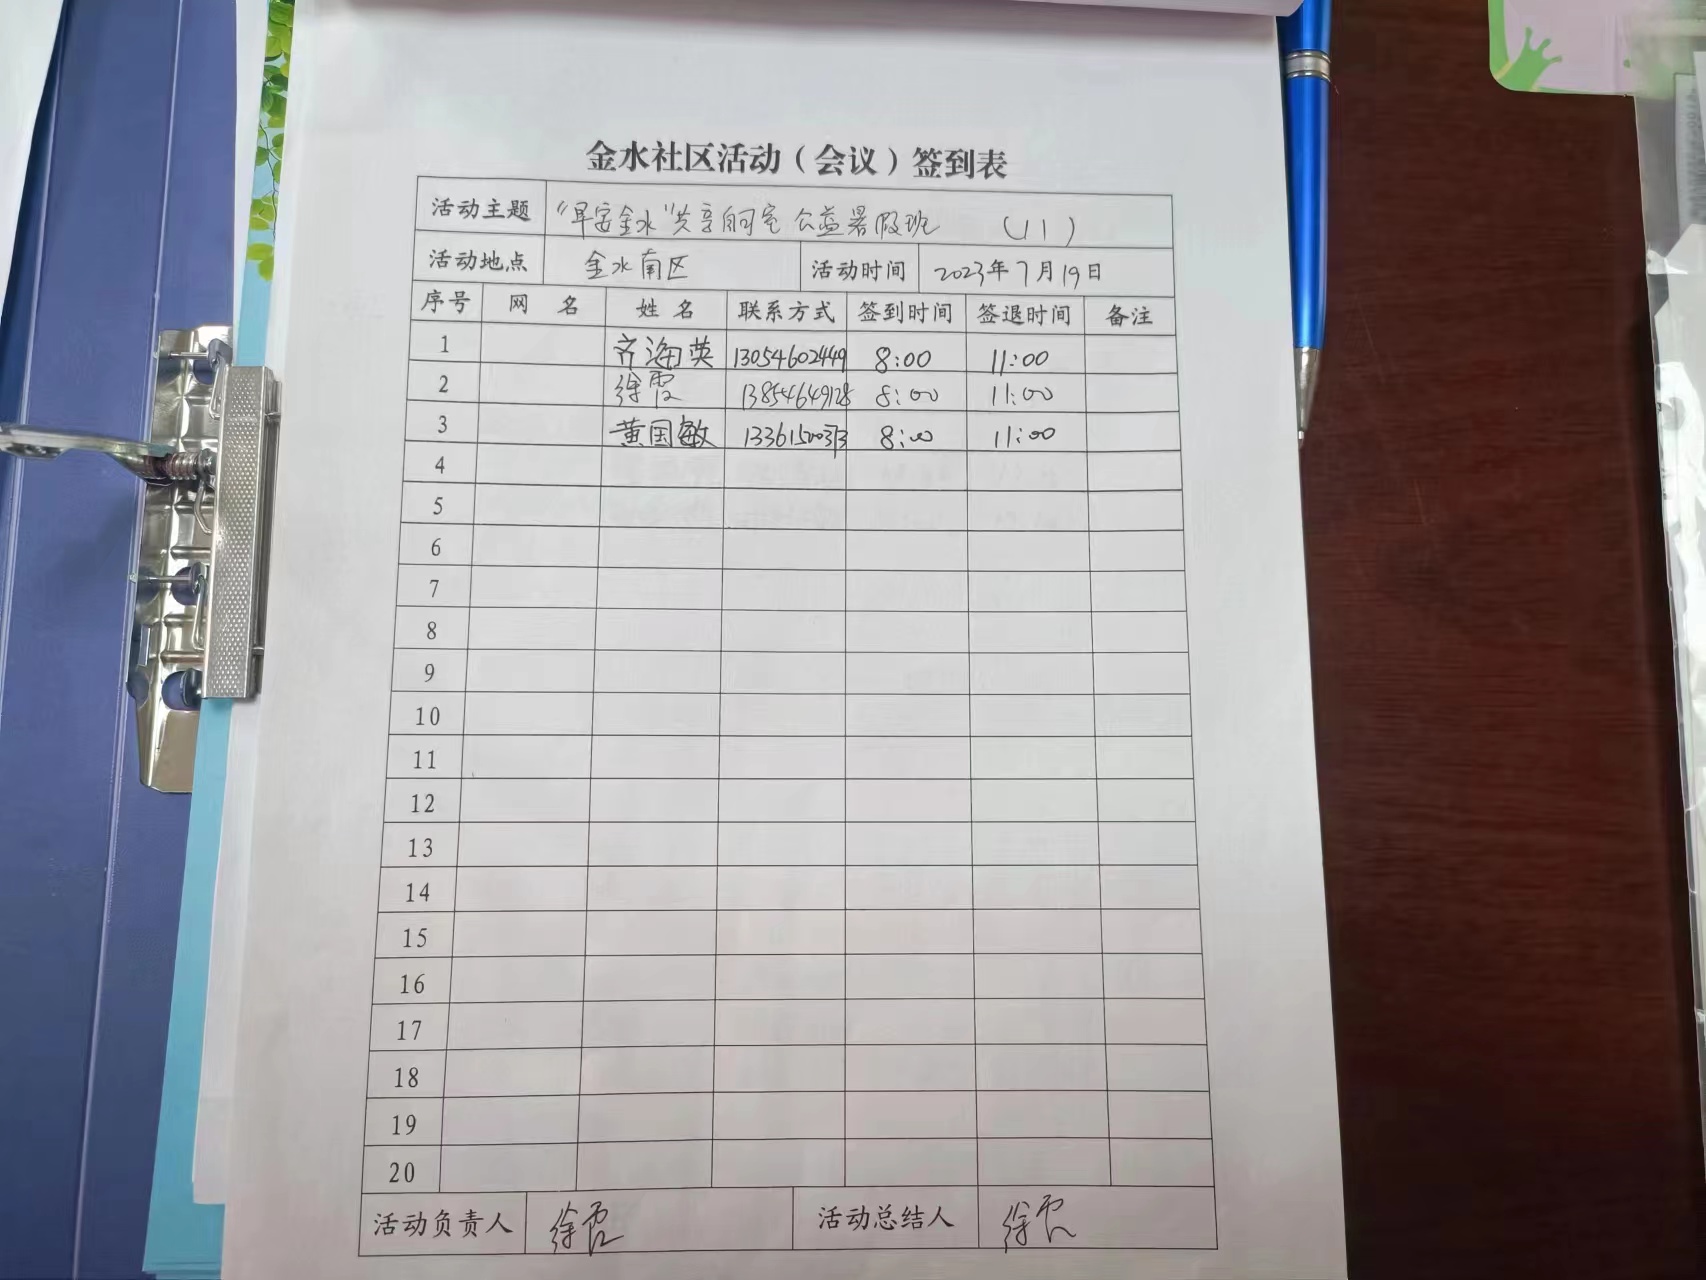 金水社区活动（会议）签到表
活动主题 “早安金水”共享自习室 公益暑假班 （11）
活动地点 金水南区 活动时间 2023年7月19日
序号 网 名 姓 名 联系方式 签到时间 签退时间 备注
1 齐海英 13054602449 8:00 11:00
2 徐霞 13854649128 8:00 11:00
3 黄国敏 8:00 11:00
4
5
6
7
8
9
10
11
12
13
14
15
16
17
18
19
20
活动负责人 徐霞 活动总结人 徐霞